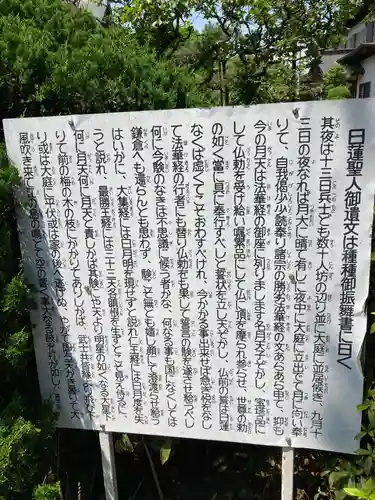 日蓮聖人御遺文は種種御振舞書に曰く
其夜は十三日、兵士ども数十人坊の辺り並に大庭に並居候き、九月十
三日の夜なれば月大に晴て有しに夜中に大庭に立出でて月に向い奉
りて、自我偈少少読奉り諸宗の勝劣法華経の文あらあら申て、抑も
今の月天は法華経の御座に列りまします名月天子ぞかし、宝塔品に
して仏勅を受け給い嘱累品にして仏に頂を摩られ参らせ、世尊の勅
の如く当に具に奉行すべしと誓状を立し天ぞかし、仏前の誓は日蓮
なくば虚くてこそおわすべけれ、今かかる事出来せば急ぎ悦をなし
て法華経の行者にも替り仏勅をも果して誓言の験を遂させ給うべし
何に今験のなきは不思議に候者かな、何なる事も国になくしては
鎌倉へも還らんとも思わず、験こそ無とも嬉し顔にて澄渡らせ給う
はいかに、大集経には日月明を現ぜずと説れ仁王経には日月度を失
うと説れ、最勝王経には三十三天各瞋恨を生ずとこそ見え侍るに
何に月天何に月天と責しかば其験にや天より明星の如くなる大星下
りて前の梅の木の枝にかかりてありしかば、武士共皆縁より飛下
り或は大庭に平伏或は家の後へ逃げぬ、やがて即ち天かき曇りて大
風吹き来て江の島の鳴とて空の響く事大なる鼓を打が如し、